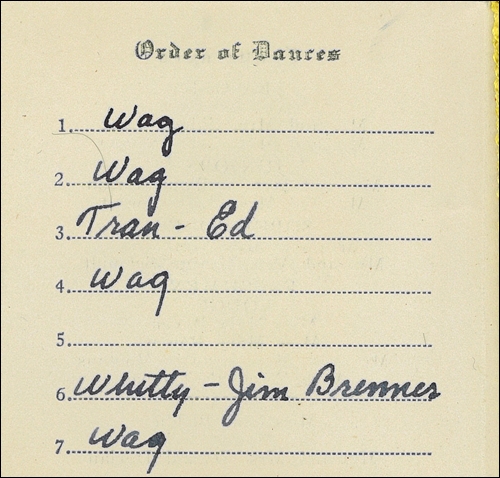 Order of Dances
1. Wag
2. Wag
3. Tran - Ed
4. Wag
5.
6. Whitty - Jim Brenner
7. Wag